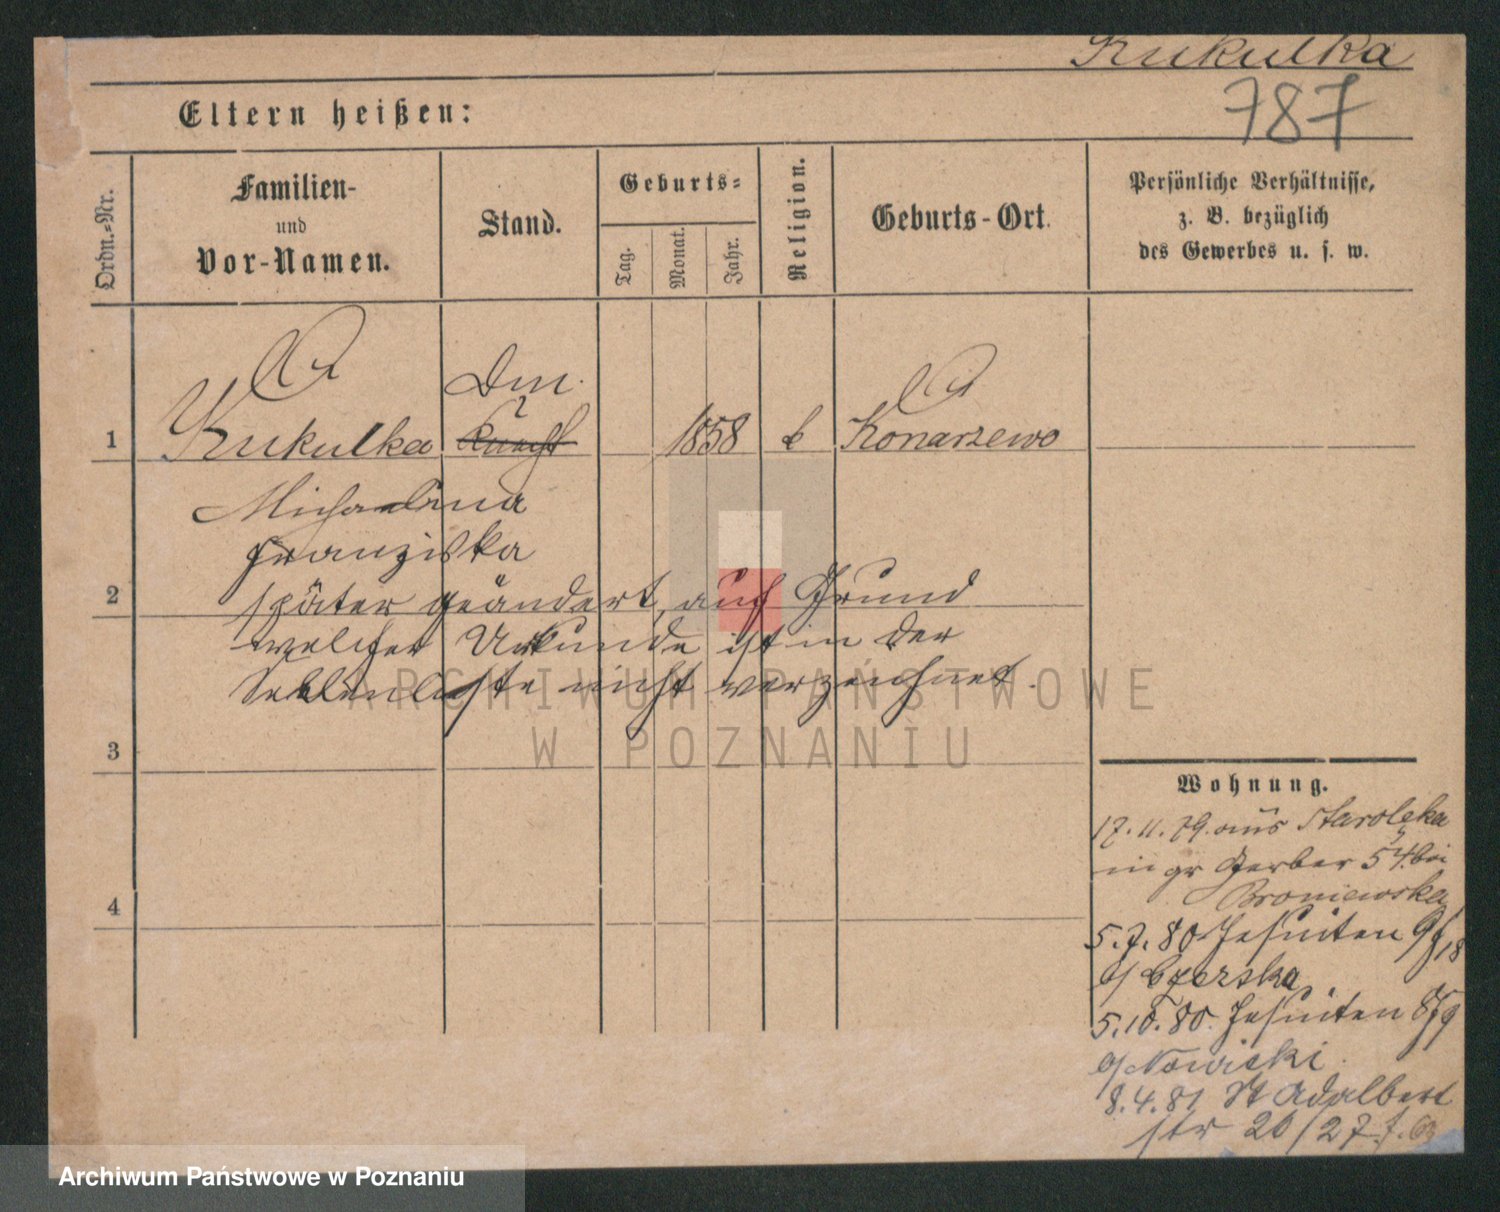 Kukulka
787
Eltern heißen:
Ordn.-Nr.
Familien-
und
Vor-Namen.
Stand.
Geburts-
Tag.
Monat.
Jahr.
Religion.
Geburts-Ort.
Persönliche Verhältnisse,
z. B. bezüglich
des Gewerbes u. s. w.
Dm.
1 Kukulka Knecht 1858 k Konarzewo
Michalina
Franziska
2
später geändert, auf Grund
welcher Urkunde ist in der
Seelenliste nicht verzeichnet.
ARCHIWUM PAŃSTWOWE
W POZNANIU
3
4
Wohnung.
17. 11. 79. aus Starolęka
in gr Gerber 54. bei
Broniewska
5. 7. 80 Jesuiten 9/18
b/ Czerska
5. 10. 80. Jesuiten 8/9
b/ Nowicki
8. 4. 81 St Adalbert
str 26/27
Archiwum Państwowe w Poznaniu